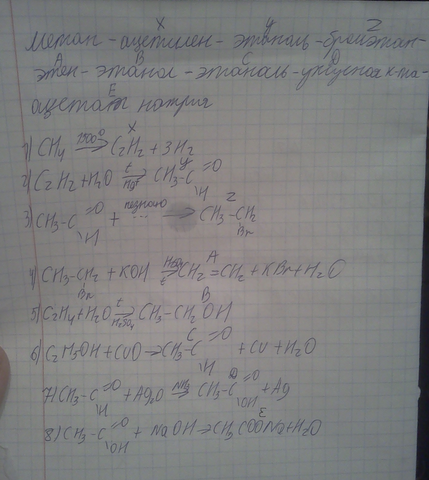 X Y Z
Метан - ацетилен - этаналь - бромэтан -
A B C D
этен - этанол - этаналь - уксусная к-та -
E
ацетат натрия
X
1) CH4 1500° → C2H2 + 3H2
Y
2) C2H2 + H2O t → Hg CH3-C =O H
3) CH3-C =O H + незнаю ... → Z CH3-CH2 Br
4) CH3-CH2 Br + KOH H2O → t A CH2=CH2 + KBr + H2O
5) C2H4 + H2O t → H2SO4 B CH3-CH2OH
6) C2H5OH + CuO → C CH3-C =O H + Cu + H2O
7) CH3-C =O H + Ag2O NH3 → D CH3-C =O OH + Ag
8) CH3-C =O OH + NaOH → E CH3COONa + H2O